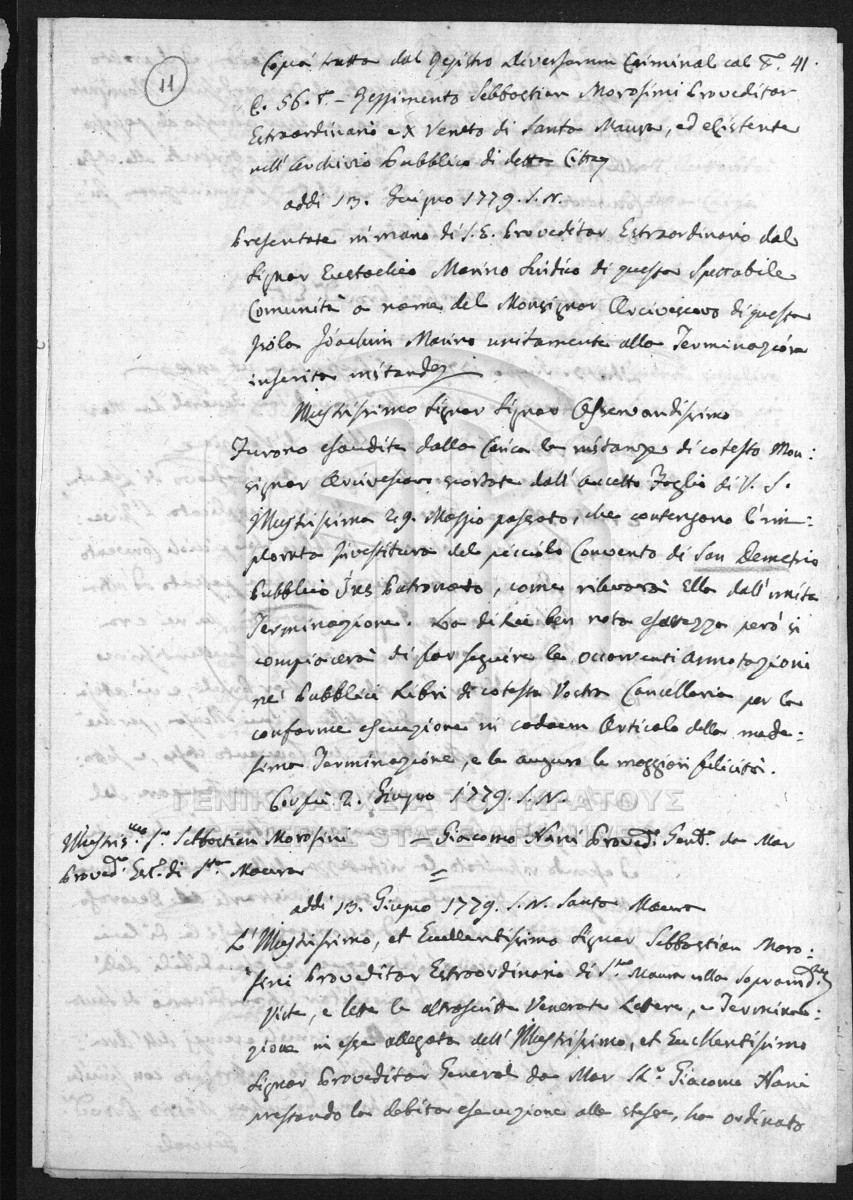 11
Copia tratta dal Registro diversorum Criminal cal T. 41.
C. 56. T. – Reggimento Sebbastian Morosini Proveditor
Estraordinario e X Veneto di Santa Maura, ed esistente
nell' Archivio Pubblico di detta Città
addi 13. Giugno 1779. S. N.
Presentate in mano di S. E. Proveditor Estraordinario dal
Signor Eustachio Marino Sindico di questa Spettabile
Comunità a nome del Monsignor Arcivescovo di questa
Isola Joachin Marino unitamente alla Terminazion
inserita instando
Illustrissimo Signor Signor Osservandissimo
Furono esaudite dalla Carica le instanze di cotesto Mon:
signor Arcivescovo scortate dall' accetto Foglio di V. S.
Illustrissima 29. Maggio passato, che contengono l' im-
plorata Investitura del picciolo Convento di San Demetrio
Pubblico Jus Patronato, come rileverà Ella dall' unita
Terminazione. La di Lei ben nota esatezza però si
compiacerà di far seguire le occorrenti annotazioni
ne' Pubblici Libri di cotesta Vostra Cancellaria per la
conforme esecuzione in cadaun Articolo della mede-
sima Terminazione, e le auguro le maggiori felicità.
Corfù 2. Giugno 1779. S. N.
ΓΕΝΙΚΑ ΑΡΧΕΙΑ ΤΟΥ ΚΡΑΤΟΥΣ
Illustriss.mo S.r Sebbastian Morosini – Giacomo Nani Proved.r Gen.l da Mar
Proved.r Est.o di S.ta Maura
addi 13. Giugno 1779. S. N. Santa Maura
L' Illustrissimo, et Eccellentissimo Signor Sebbastian Moro-
sini Proveditor Estraordinario di S.ta Maura
Viste, e lette le altroscritte Venerate Lettere, e Termina-
zione in essa allegata dell' Illustrissimo, et Eccellentissimo
Signor Proveditor General da Mar K.r Giacomo Nani
prestando la debita esecuzione alle stesse, ha ordinato